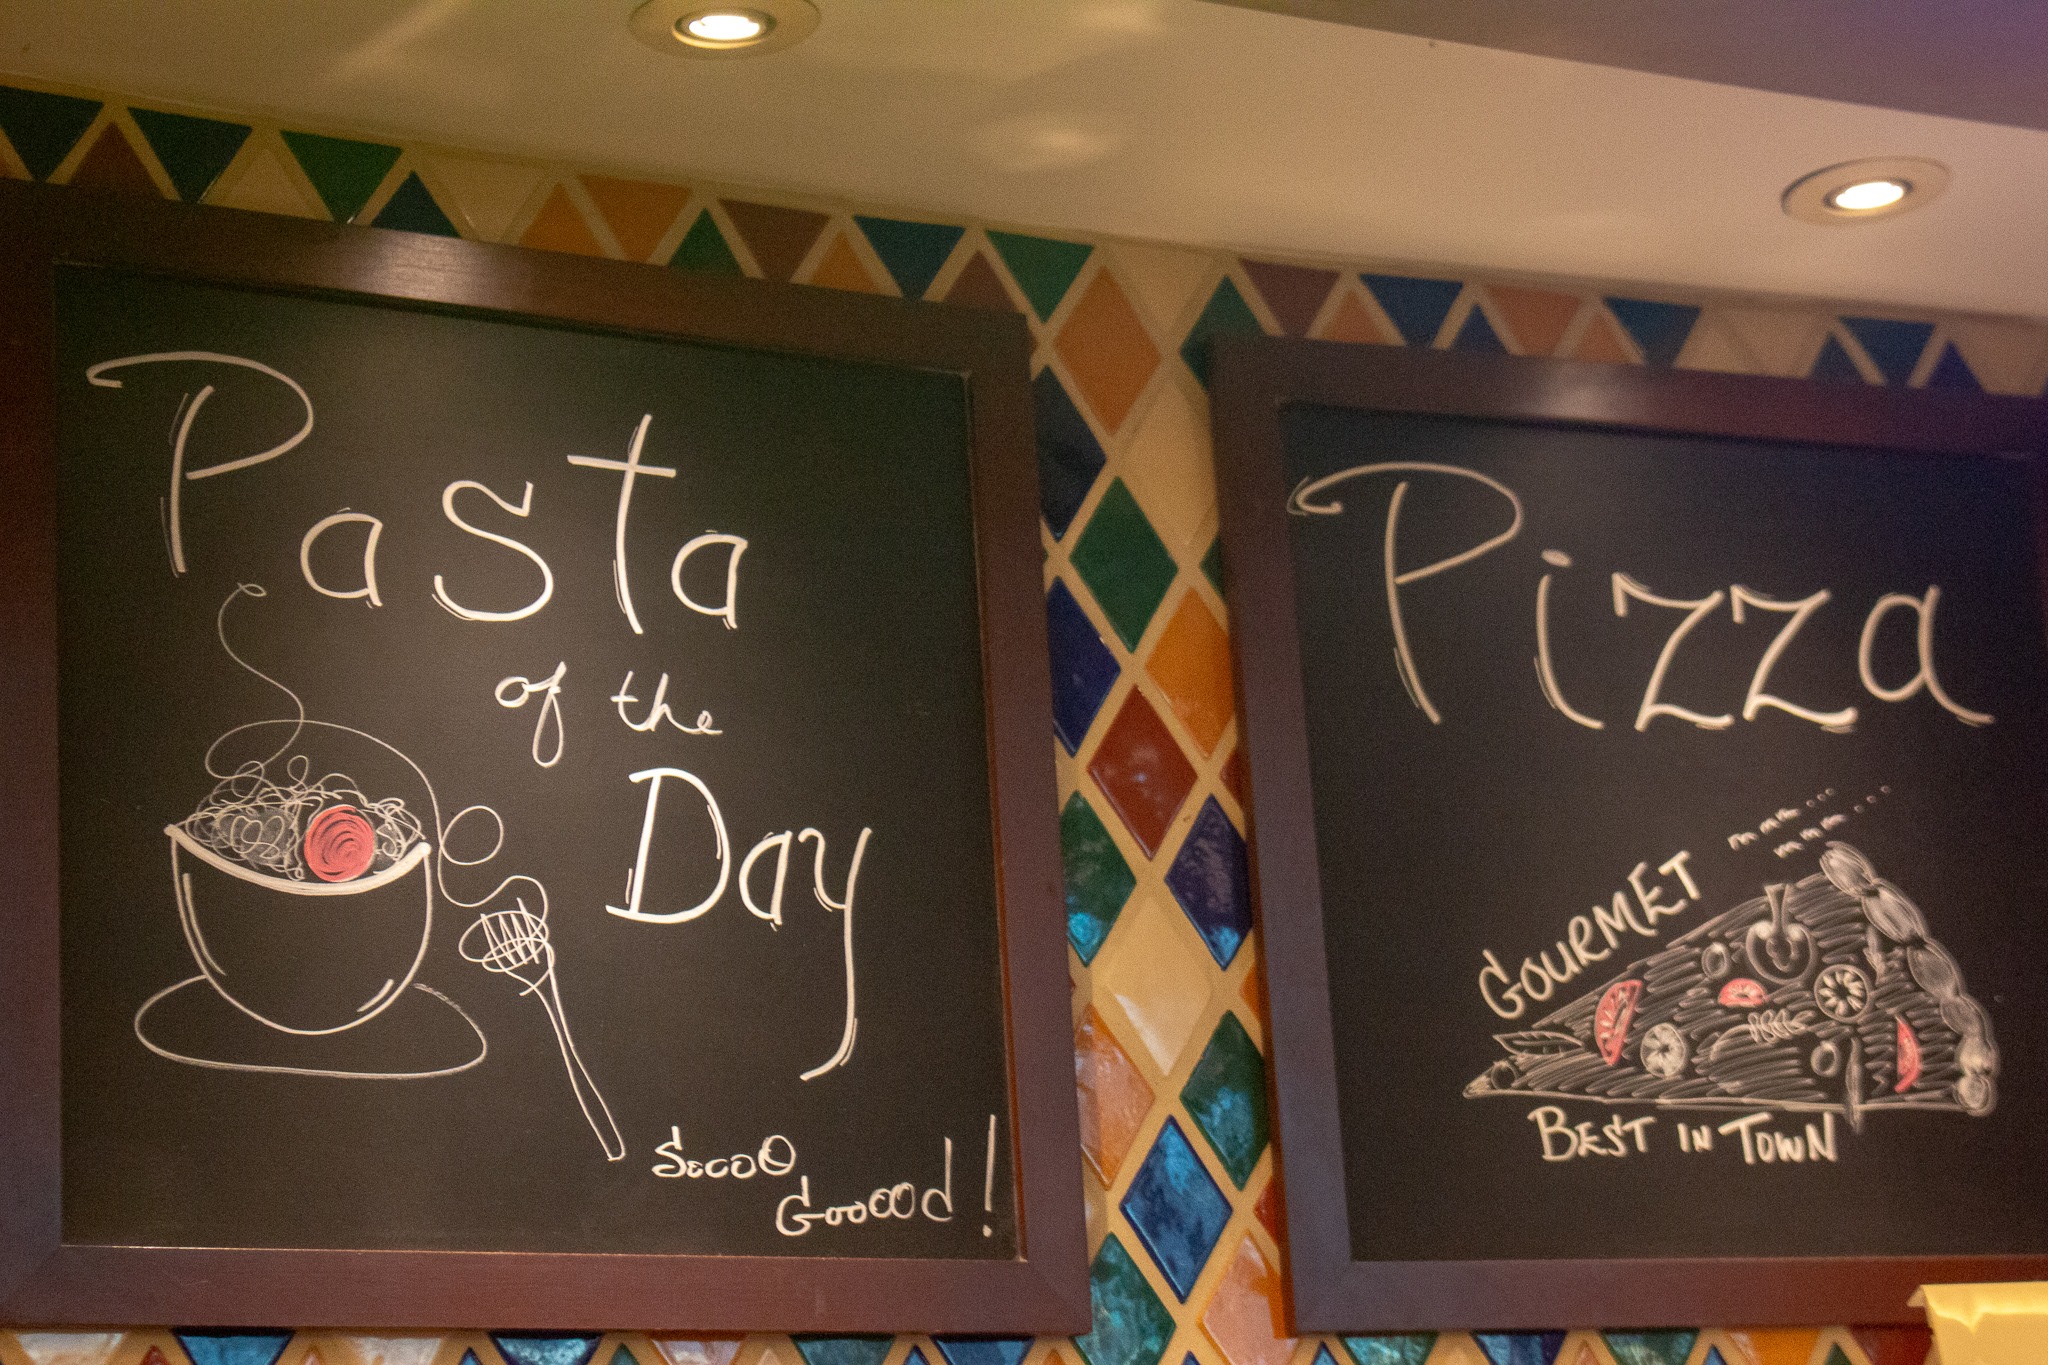 Pasta
of the
Day
SoooO
GooOOd!
Pizza
mmm...
mmm...
GOURMET
BEST IN TOWN